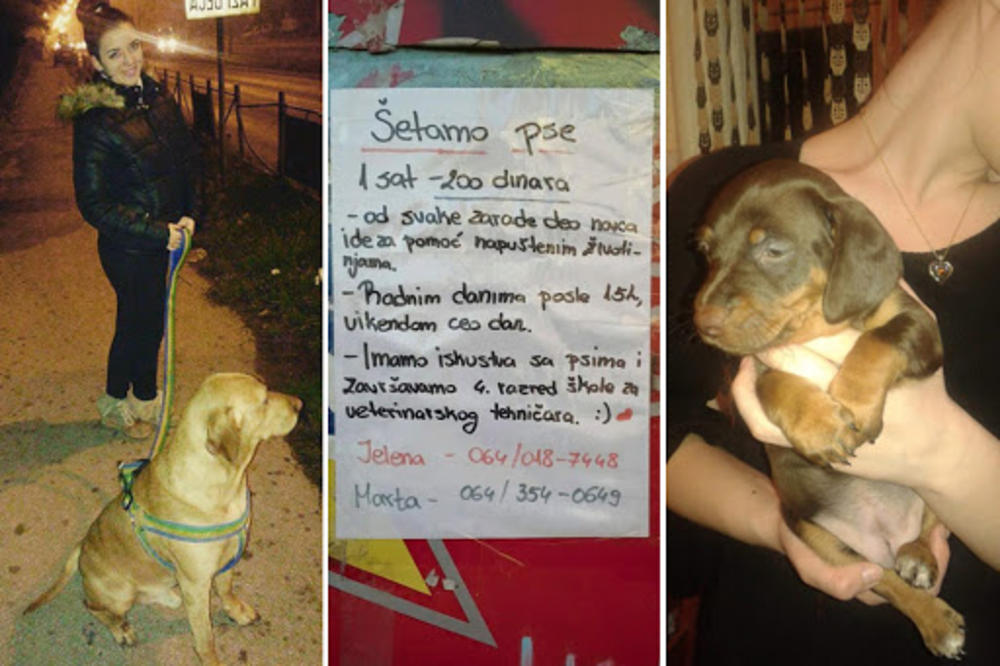 Šetamo pse
1 sat - 200 dinara
- od svake zarade deo novca
ide za pomoć napuštenim životi-
njama.
- Radnim danima posle 15h,
vikendom ceo dan.
- Imamo iskustva sa psima i
Završavamo 4. razred škole za
veterinarskog tehničara. :) ❤
Jelena - 064/018-7448
Marta - 064/354-0649